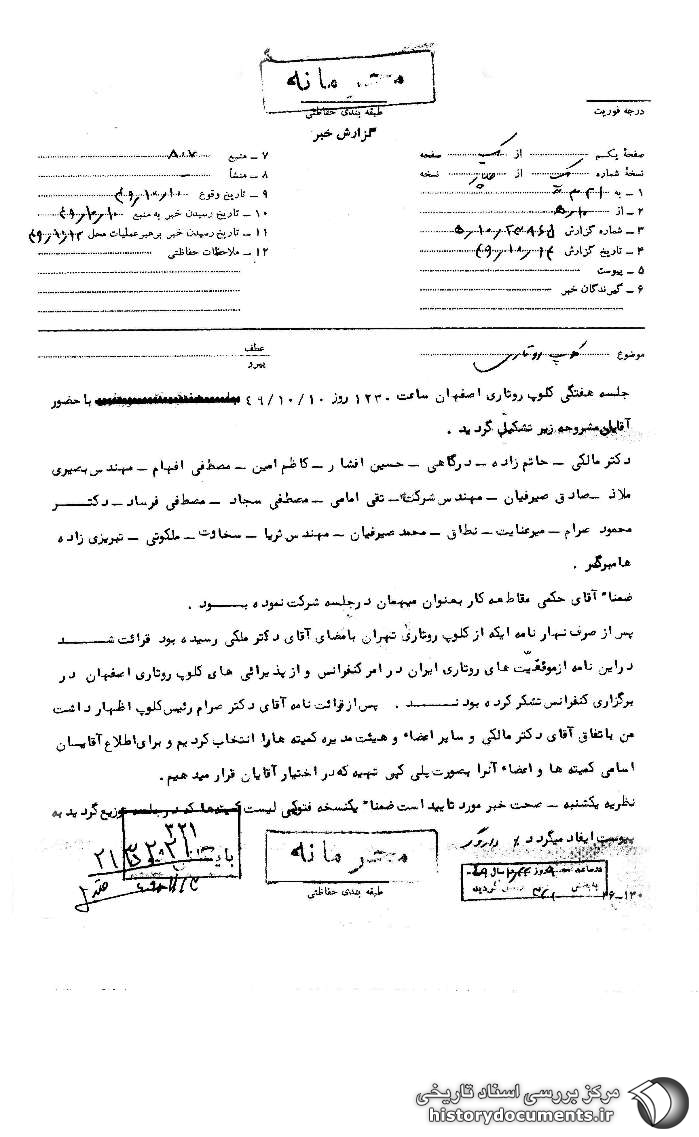 محرمانه
طبقه بندی حفاظتی
درجه فوریت
گزارش خبر
صفحه یکم از یک صفحه
نسخه شماره یک از چهار نسخه
۱ ـ به ۳۲۱
۲ ـ از ۱۰ ه‍
۳ ـ شماره گزارش
۴ ـ تاریخ گزارش
۵ ـ پیوست
۶ ـ گیرندگان خبر
۷ ـ منبع ۸۰۷
۸ ـ منشأ ـ
۹ ـ تاریخ وقوع ۴۶/۱۰/۱۰
۱۰ ـ تاریخ رسیدن خبر به منبع ۴۶/۱۰/۱۰
۱۱ ـ تاریخ رسیدن خبر برهبر عملیات محل
۱۲ ـ ملاحظات حفاظتی
موضوع کلوپ روتاری
عطف
پیرو
جلسه هفتگی کلوپ روتاری اصفهان ساعت ۱۲۳۰ روز ۴۶/۱۰/۱۰ با حضور
آقایان مشروحه زیر تشکیل گردید .
دکتر مالکی ـ حاتم زاده ـ درگاهی ـ حسین افشار ـ کاظم امین ـ مصطفی افهام ـ مهندس بصیری
ملاذ ـ صادق صیرفیان ـ مهندس شرکت ـ تقی امامی ـ مصطفی سجاد ـ مصطفی فرساد ـ دکتر
محمود صرام ـ میرعنایت ـ نطاق ـ محمد صیرفیان ـ مهندس ثریا ـ سخاوت ـ ملکوتی ـ تبریزی زاده
هامبرگر .
ضمنا" آقای حکمی مقاطعه کار بعنوان میهمان درجلسه شرکت نموده بود .
پس از صرف نهار نامه ایکه از کلوپ روتاری تهران بامضای آقای دکتر ملکی رسیده بود قرائت شد
دراین نامه ازموفقیت های روتاری ایران در امر کنفرانس و از پذیرائی های کلوپ روتاری اصفهان در
برگزاری کنفرانس تشکر کرده بودند . پس از قرائت نامه آقای دکتر صرام رئیس کلوپ اظهار داشت
من باتفاق آقای دکتر مالکی و سایر اعضاء و هیئت مدیره کمیته ها را انتخاب کردیم و برای اطلاع آقایان
اسامی کمیته ها و اعضاء آنرا بصورت پلی کپی تهیه که در اختیار آقایان قرار میدهیم .
نظریه یکشنبه ـ صحت خبر مورد تایید است ضمنا" یکنسخه فتوکپی لیست کمیته ها که در جلسه توزیع گردید به
پیوست ایفاد میگردد
۳۲۱
محرمانه
طبقه بندی حفاظتی
۳۶ـ۱۳۰
مرکز بررسی اسناد تاریخی
historydocuments.ir